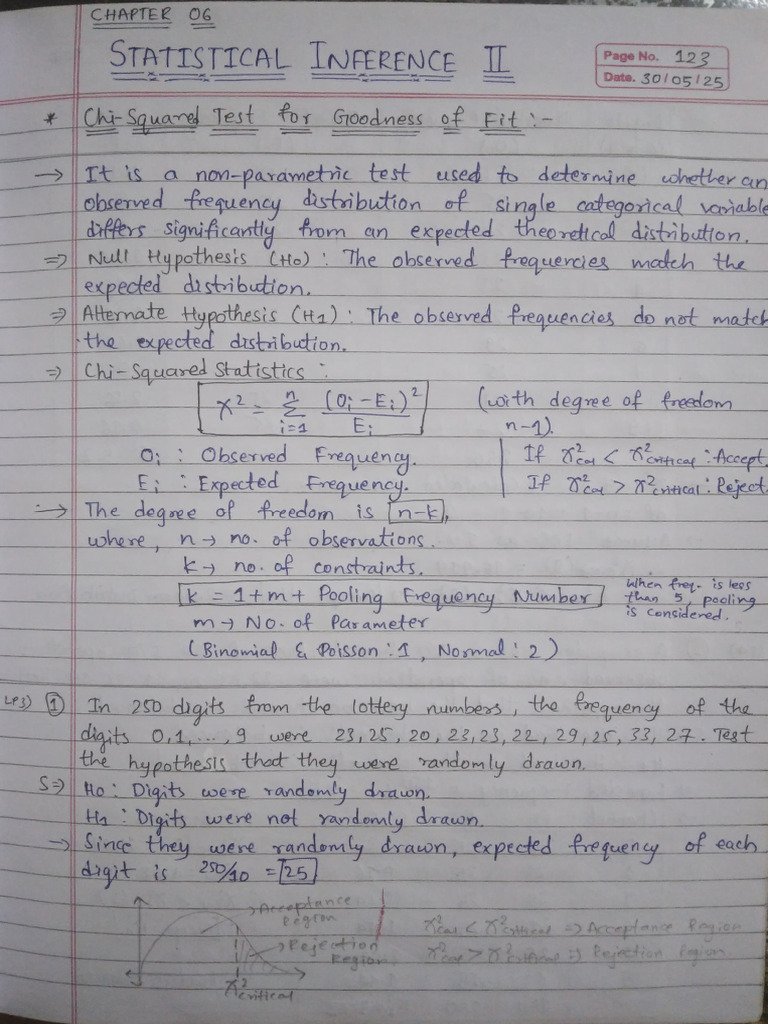 CHAPTER 06
STATISTICAL INFERENCE II
Page No. 123
Date. 30/05/25
* Chi-Squared Test for Goodness of Fit :-
→ It is a non-parametric test used to determine whether an
observed frequency distribution of single categorical variable
differs significantly from an expected theoretical distribution.
⇒ Null Hypothesis (H0) : The observed frequencies match the
expected distribution.
⇒ Alternate Hypothesis (H1) : The observed frequencies do not match
the expected distribution.
⇒ Chi-Squared Statistics :
χ² = Σ_{i=1}^{n} (Oi - Ei)² / Ei (with degree of freedom
n-1).
Oi : Observed Frequency.
Ei : Expected Frequency.
If χ²cal < χ²critical : Accept.
If χ²cal > χ²critical : Reject.
→ The degree of freedom is n-k,
where, n → no. of observations.
k → no. of constraints.
k = 1 + m + Pooling Frequency Number
When freq. is less
than 5, pooling
is considered.
m → No. of Parameter
(Binomial & Poisson : 1, Normal : 2)
① In 250 digits from the lottery numbers, the frequency of the
digits 0,1,...,9 were 23, 25, 20, 23, 23, 22, 29, 25, 33, 27. Test
the hypothesis that they were randomly drawn.
S⇒ H0 : Digits were randomly drawn.
H1 : Digits were not randomly drawn.
→ Since they were randomly drawn, expected frequency of each
digit is 250/10 = 25
→ Acceptance
Region
→ Rejection
Region
χ²critical
χ²cal < χ²critical ⇒ Acceptance Region
χ²cal > χ²critical ⇒ Rejection Region